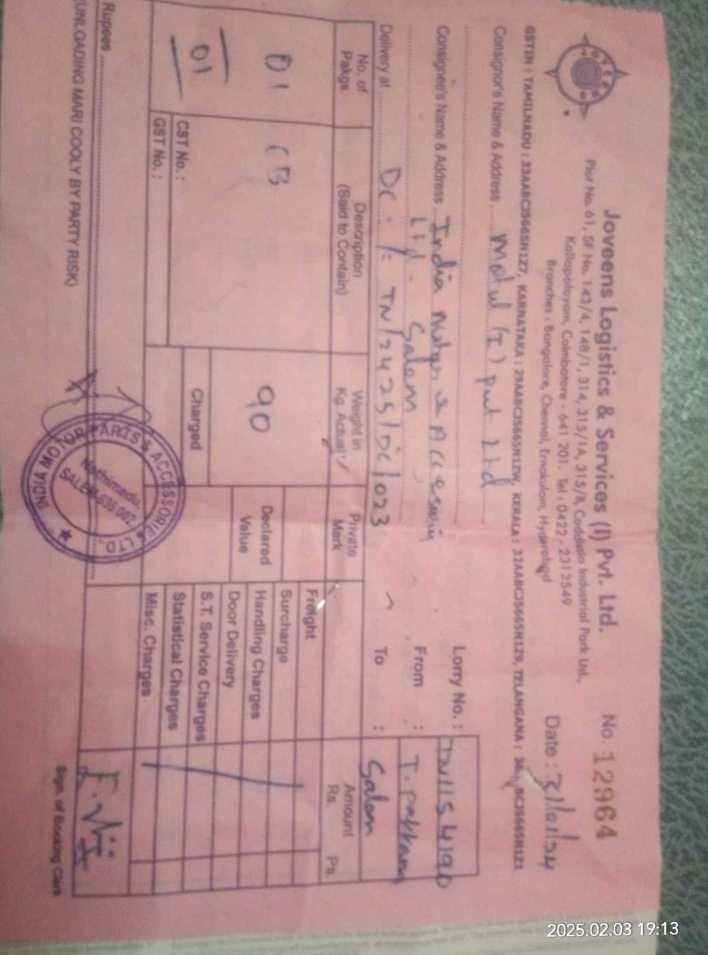 Joveens Logistics & Services (I) Pvt. Ltd.
No. 12964
Plot No. 61, SF No. 143/4, 148/1, 314, 315/1A, 315/8, Codissia Industrial Park Ltd.,
Kallapalayam, Coimbatore - 641 201. Tel : 0422 - 2312549
Branches : Bangalore, Chennai, Ernakulam, Hyderabad
Date : 31/01/24
GSTIN : TAMILNADU : 33AABCJ5665H1Z7, KARNATAKA : 29AABCJ5665H1ZW, KERALA : 32AABCJ5665H1Z9, TELANGANA :
Consignor's Name & Address Motul (I) pvt Ltd
Lorry No. :
Consignee's Name & Address India Motor
Ltd. Salem
From :
Delivery at DC : TN/2425/DC/023
To : Salem
No. of Pakgs
Description (Said to Contain)
Weight in Kg. Actual
Private Mark
Amount
Rs.
Ps.
01 CB 90
01
Charged
Declared Value
Freight
Surcharge
Handling Charges
Door Delivery
S.T. Service Charges
Statistical Charges
Misc. Charges
CST No. :
GST No. :
Rupees
(UNLOADING MARI COOLY BY PARTY RISK)
Sign. of Booking
INDIA MOTOR PARTS & ACCESSORIES LTD.,
SALEM-636 002.
2025.02.03 19:13